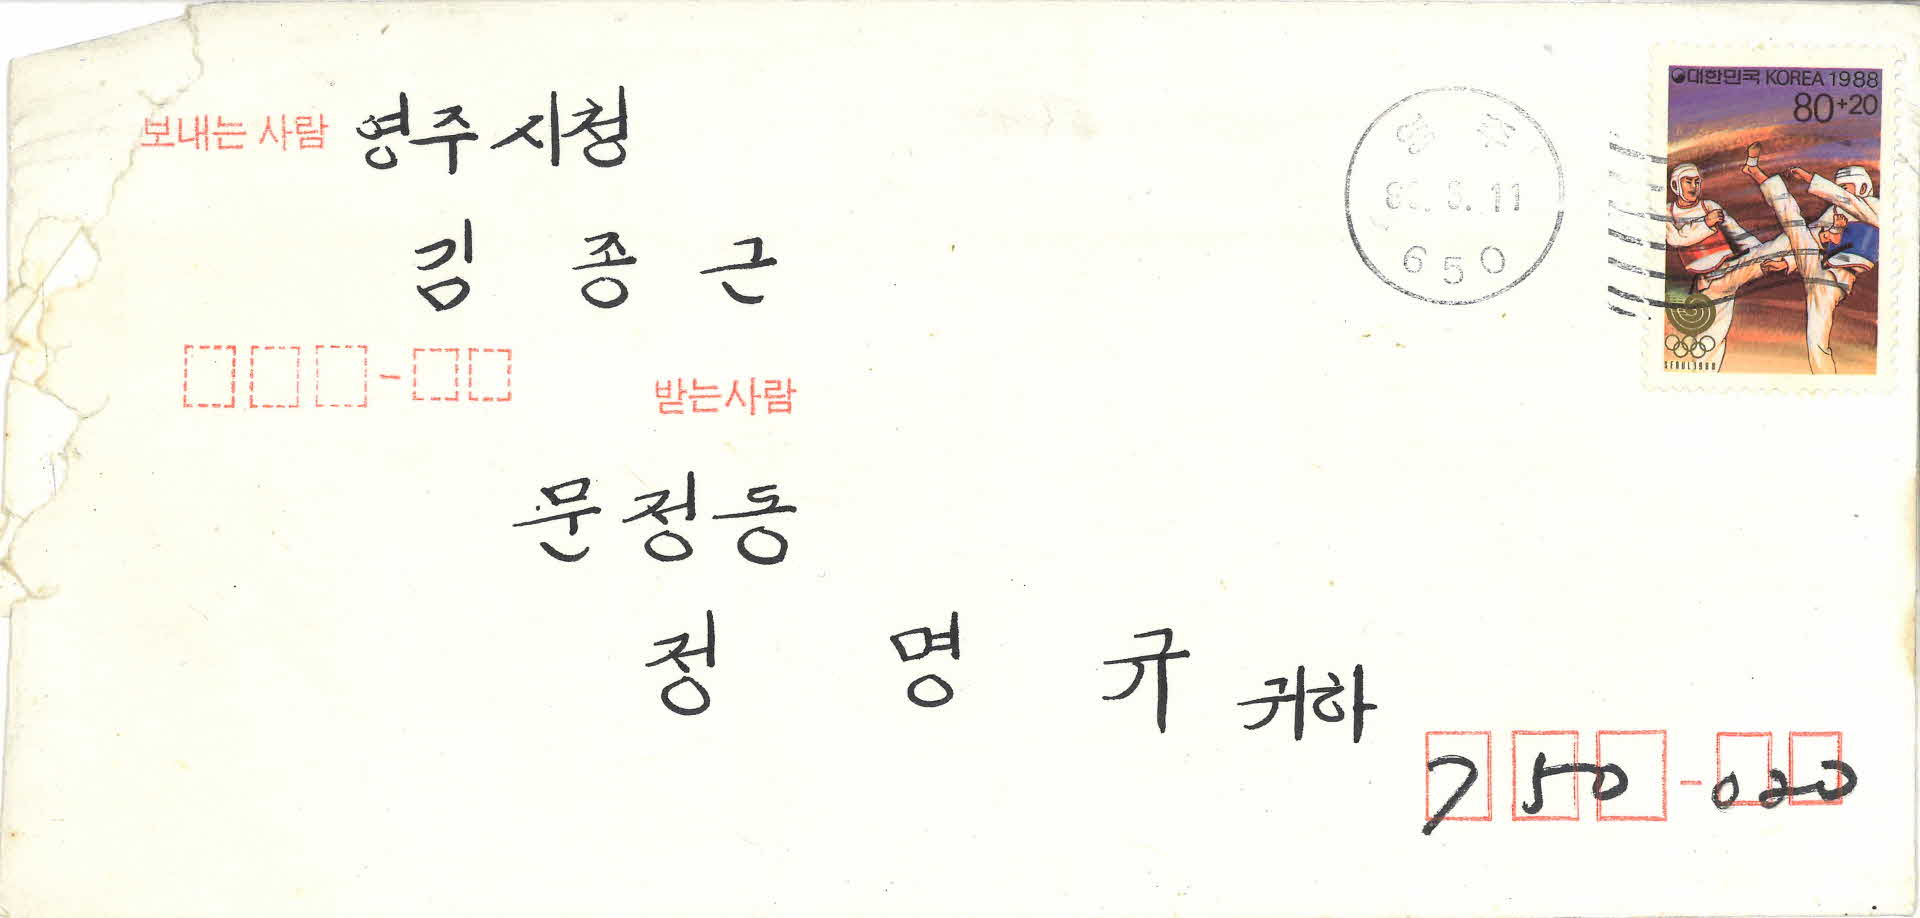 보내는 사람 영주시청
김 종 근
대한민국 KOREA 1988
80+20
SEOUL 1988
영 주
6. 11
650
받는사람
문정동
정 명 규 귀하
750-020